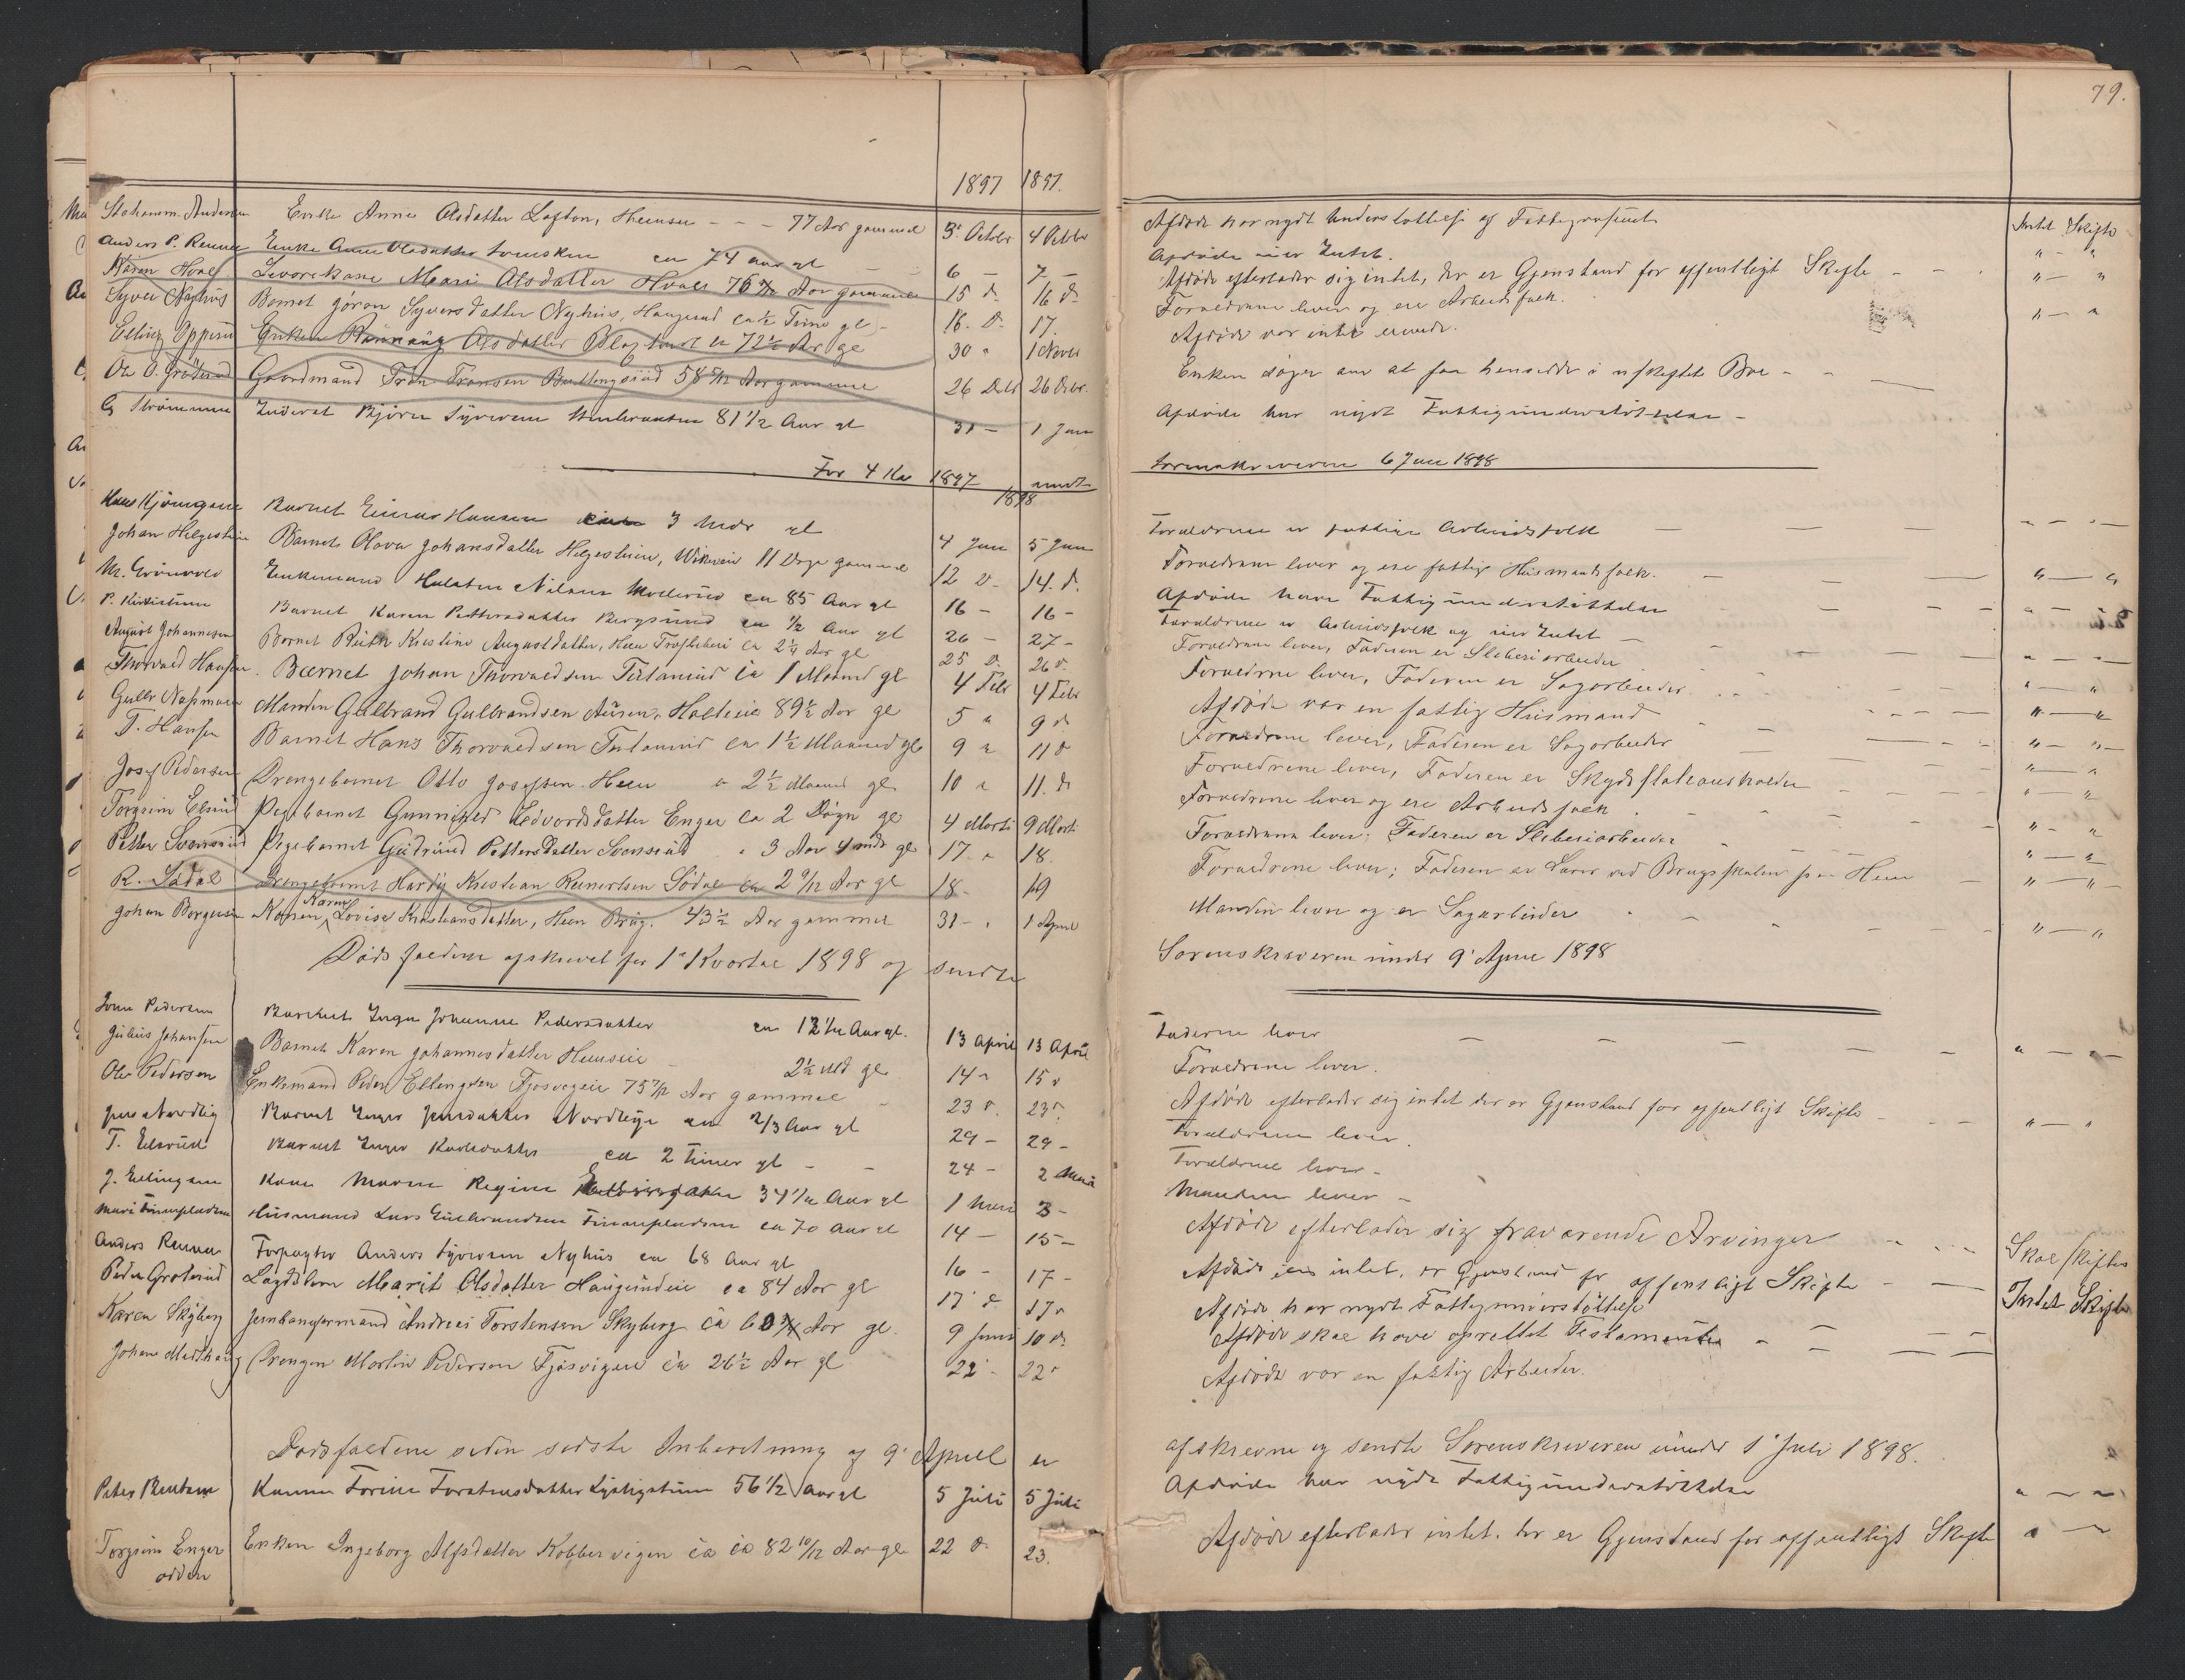 79.
1897 1897.
Stehansm. Andersen Enke Anne Olsdatter Lofton, Heensen - - 77 Aar gammel 3' Octobr 4 Octbr Afdøde har nydt Understøttelse af Fattigvæsenet Intet Skifte
Anders P. Renna Enke Anne Olsdatter ca 74 aar gl 6 - 7 - Afdøde eier Intet. " - "
Karen Hval Levorskone Mari Olsdatter Hvals 76 Aar gammel 15 d. 16 d. Afdøde efterlader sig intet, der er Gjenstand for offentligt Skifte " - "
Syver Nyhus Barnet Jøran Syversdatter Nyhus, Haugerud ca ½ Time gl - 16. d. 17. Forældrene lever og ere Arbeidsfolk. " - "
Elling Opperud Enken Olsdatter ca 72½ Aar gl 30 " 1 Novbr Afdøde var intet eiende.
Ole O. Grøterud Gaardmand Trøn Tronsen Bullingsrud 58 Aar gammel 26 Decb 26 Decbr. Enken søger om at faa hensidde i uskiftet Boe - -
G Strømmen Inderst Bjørn Syversen 81 1/2 Aar gl 31 - 1 Jan Afdøde har nydt Fattigunderstøttelse -
For 4 Kv 1897 sendt Sorenskriveren 6 Jan 1898
1898
Hans Barnet Einar Hansen 3 Mdr gl 4 Jan 5 Jan Forældrene er fattige Arbeidsfolk
Johan Helgestein Barnet Olava Johansdatter Helgestein, 11 Dage gammel 12 d. 14. d. Forældrene lever og ere fattige Husmandsfolk.
M. Grønvold Enkemand Halsten Nilsen Moderud ca 85 Aar gl 16 - 16 - Afdøde have Fattigunderstøttelse
P. Barnet Karen Pettersdatter Bergsund ca ½ Aar gl 26 - 27 - Forældrene er Arbeidsfolk og eier Intet
August Johannesen Barnet Ruth Kristine Augustdatter, Heen Træsliberi ca 2¼ Aar gl 25 d. 26 d. Forældrene lever, Faderen er Sliberiarbeider
Thorvald Hansen. Barnet Johan Thorvaldsen Tutanrud ca 1 Maaned gl 4 Febr 4 Febr Forældrene lever, Faderen er Sagarbeider
Gulbr Manden Gulbrand Gulbrandsen Auren, 89½ Aar gl 5 " 9 d. Afdøde var en fattig Husmand
T. Hansen Barnet Hans Thorvaldsen Tutanrud ca 1½ Maaned gl 9 " 11 d Forældrene lever, Faderen er Sagarbeider
Josef Pedersen Drengebarnet Otto Josefsen Heen " 2½ Maaned gl 10 " 11. d. Forældrene lever, Faderen er Skydsstationsholder
Torgrim Elsrud Pigebarnet Gunnhild Edvardsdatter Enger ca 2 Døgn gl 4 Marts 9 Marts Forældrene lever og ere Arbeidsfolk
Petter Svensrud Pigebarnet Gudrund Pettersdatter Svensrud " 3 Aar 4 mdr gl 17 " 18. Forældrene lever; Faderen er Sliberiarbeider
R. Sødal Drengebarnet Hardy Kristian Reinertsen Sødal ca 2 9/12 Aar gl 18 - 19 Forældrene lever; Faderen er Lærer ved Brugsskolen paa Heen
Johan Borgersen Konen, Karen Lovise Kristiansdatter, Heen Brug. 43½ Aar gammel 31 - " 1 April Manden lever og er Sagarbeider
Dødsfaldene afskrevet for 1' Kvartal 1898 og sendte Sorenskriveren under 9' April 1898
Pedersen Barnet Inga Johanne Pedersdatter ca 12 Aar gl. 13 April 13 April Faderen lever
Julius Johansen Barnet Karen Johannesdatter Heenseie 2½ Md gl 14 " 15 " Forældrene lever.
Ole Pedersen Enkemand Peder Ellingsen Fjøsvigeie 75 7/12 Aar gammel 23 d. 23 d. Afdøde efterlader sig intet der er Gjenstand for offentligt Skifte
Jens Nordlig Barnet Inger Jensdatter Nordlige ca 2/3 Aar gl 29 - 29 - Forældrene lever.
T. Elsrud Barnet Inger Karlsdatter ca 2 Timer gl - 24 - 2 Mai Forældrene lever -
J. Ellingsen Kone Maren Regine 34 Aar gl 1 Mai 3 - Manden lever -
Mari Husmand Lars Gulbrandsen ca 70 Aar gl 14 - 15 - Afdøde efterlader sig fraværende Arvinger Skal skiftes
Anders Renna Forpagter Anders Syversen Nyhus ca 68 Aar gl 16 - 17 - Afdøde eier intet, er Gjenstand for offentligt Skifte Intet Skifte
Peder Grøterud Lægdslem Marit Olsdatter Haugerudeie ca 84 Aar gl 17' d. 17 d. Afdøde har nydt Fattigunderstøttelse
Karen Skyberg Jernbaneformand Andreas Torstensen Skyberg ca 60 Aar gl. 9 Juni 10 d. Afdøde skal have oprettet Testamente
Johan Drengen Martin Pedersen Fjøsvigeie ca 26½ Aar gl 22' - 22 " Afdøde var en fattig Arbeider.
Dødsfaldene siden sidste Inberetning af 9' April er afskrevne og sendte Sorenskriveren under 1' Juli 1898.
Peter Konen Torine Torstensdatter 56 1/2 aar gl 5 Juli 5 Juli Afdøde har nydt Fattigunderstøttelse
Torgrim Enger Enken Ingeborg Alfsdatter Kobbervigen ca ca 82 10/12 Aar gl 22 d. 23. Afdøde efterlader intet, der er Gjenstand for offentligt Skifte " -